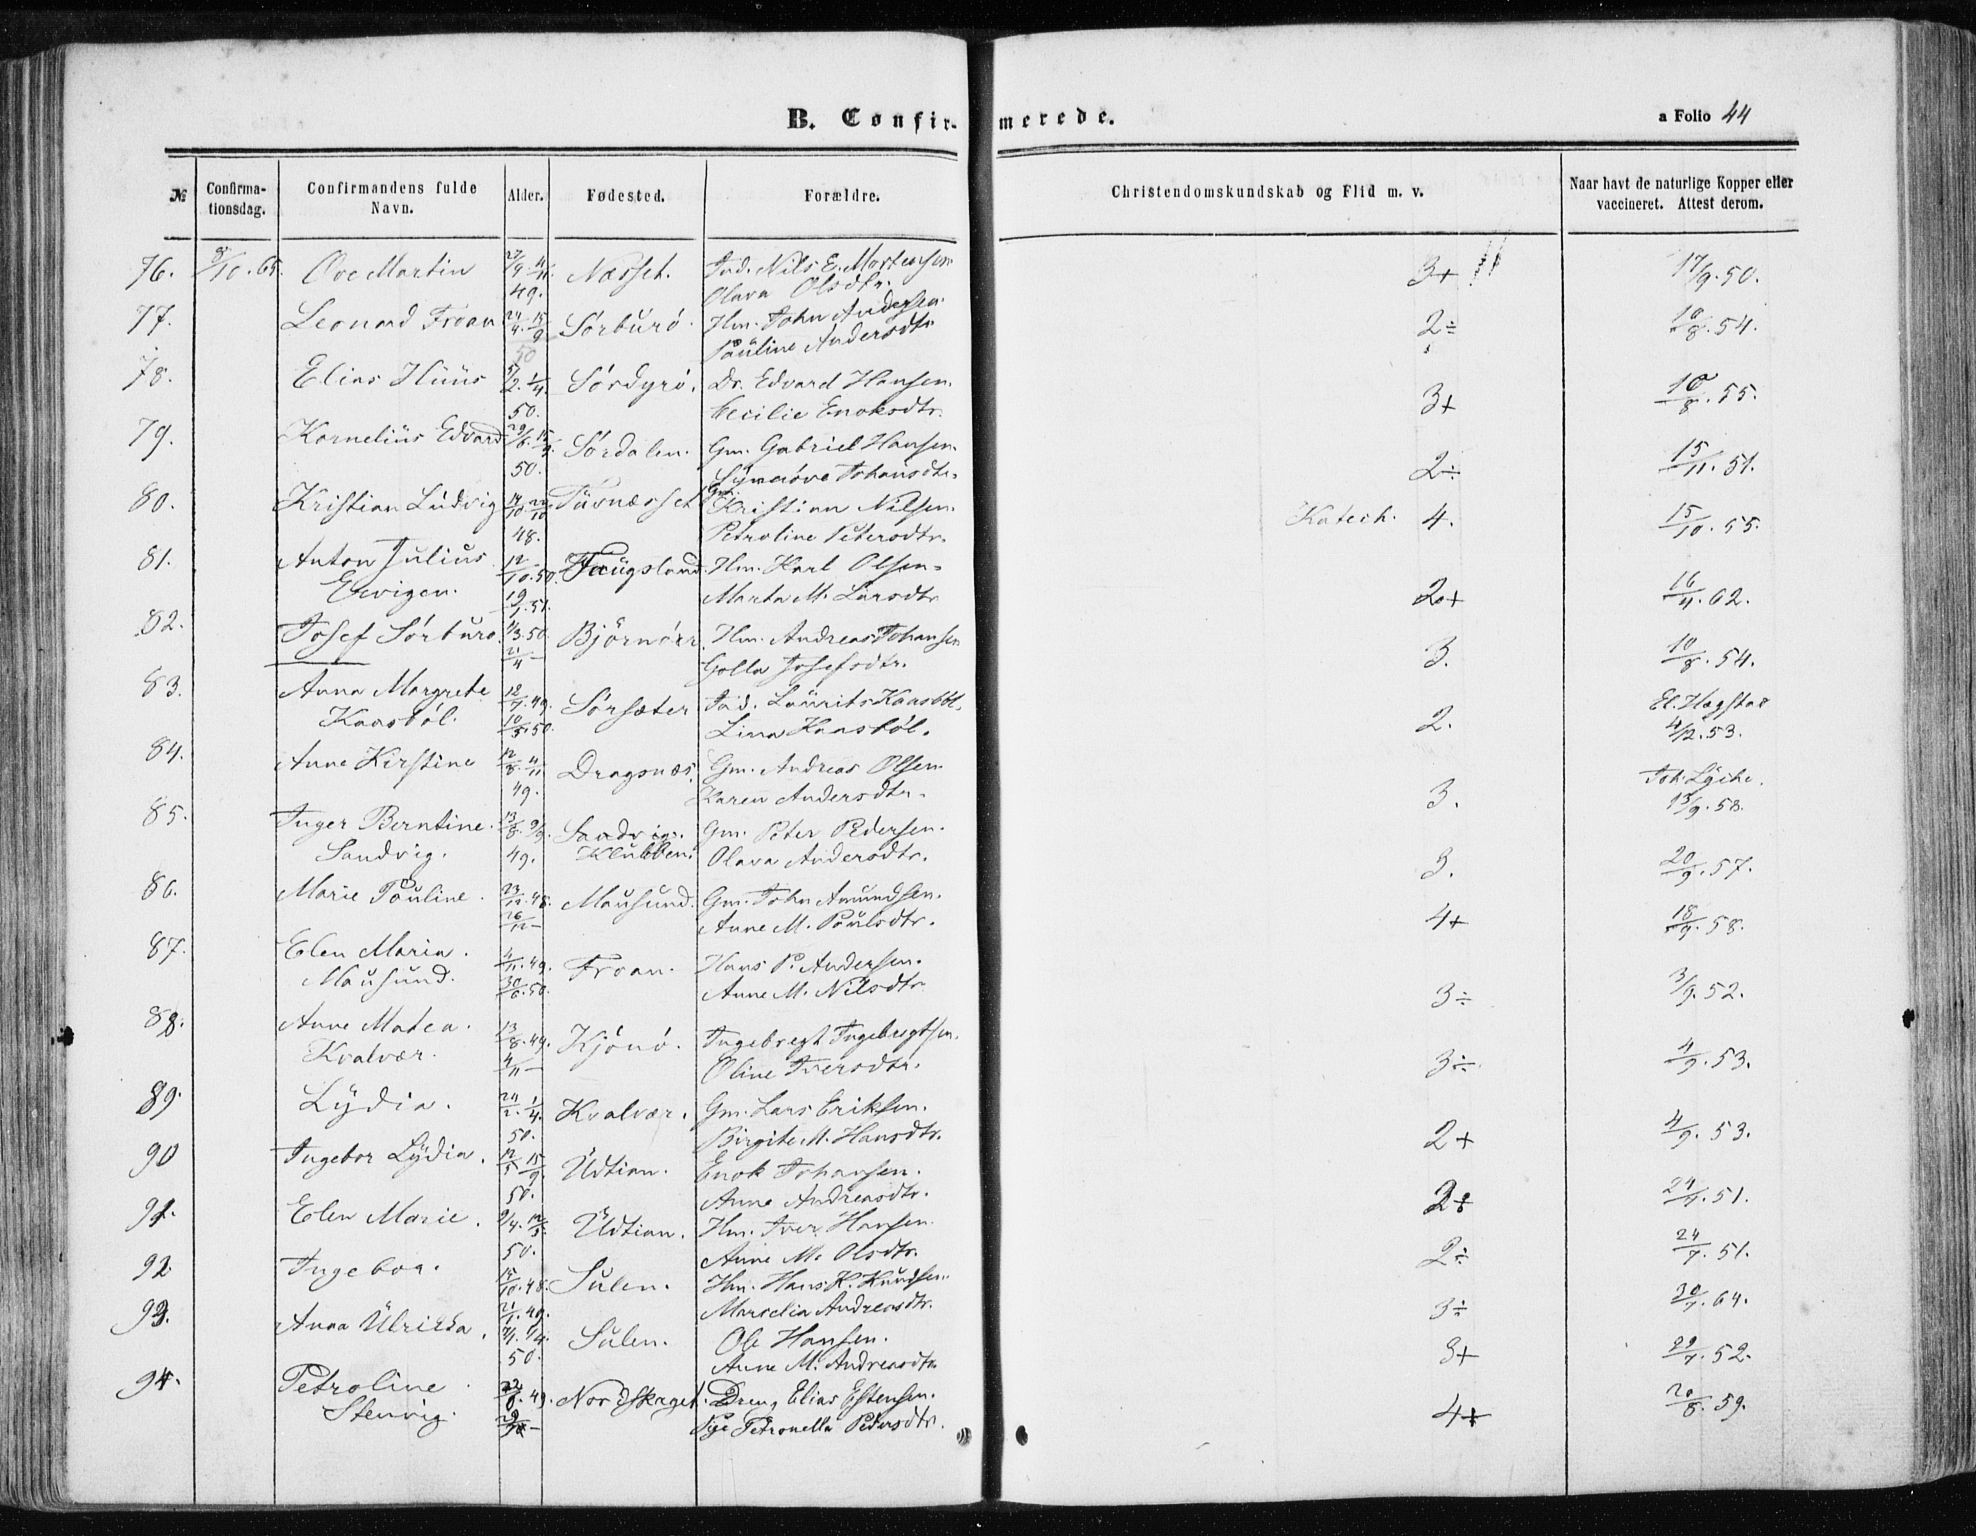 B. Confirmerede.
a Folio 44
№ Confirmationsdag. Confirmandens fulde Navn. Alder. Fødested. Forældre. Christendomskundskab og Flid m. v. Naar havt de naturlige Kopper eller vaccineret. Attest derom.
76. 8/10. 65. Ove Martin 27/9 4/11 Næsset. Ind. Nils E. Mortensen 3+ 17/9. 50.
49. Olava Olsdtr.
77. Leonard Froan 24/4. 15/9 Sørburö. Hm. John Andersen. 2÷ 10/8. 54.
50 Pauline Andersdtr
78. Elias Huus 5/2. 1/4 Sørdyrö. Dr. Edvard Hansen. 3+ 10/8. 55.
50. Cecilie Enoksdtr.
79. Kornelius Edvard 29/6. 15/9 Sørdalen. Gm. Gabriel Hansen. 2÷ 15/11. 51.
50. Synnöve Johansdtr.
80. Kristian Ludvig 14/10. 22/10 Tuvnæsset Gm. Kristian Nilsen. Katech. 4. 15/10. 55.
48. Petroline Petersdtr.
81. Anton Julius 12/10. 50. Faugsland. Hm. Karl Olsen. 2+ 16/4. 62.
Ervigen. 19/1. 51. Marta M. Larsdtr
82. Josef Sørburö 1/3. 50 Björnörr. Hm. Andreas Johansen 3. 10/8. 54.
21/4 — Golla Josefsdtr.
83. Anna Margrete 12/7. 49. Sørsæter Ind. Lauritz Kaasböl. 2. El. Hagstad
Kaasböl. 10/5. 50. Lina Kaasböl. 4/12. 53.
84. Anne Kirstine 12/8. 4/11 Dragsnæs. Gm. Andreas Olsen. 3. Joh. Lyche.
49. Karen Andersdtr. 13/9. 53.
85. Inger Berntine. 13/8. 9/9. Sandvig. Gm. Peter Pedersen. 3. 20/9. 57.
Sandvig. 49. Klubben. Olava Andersdtr.
86. Marie Pauline. 23/12. 48. Mausund. Gm. John Amundsen. 4+ 18/9. 58.
26/12 — Anne M. Paulsdtr.
87. Elen Maria. 4/11. 49. Froan. Hans P. Andersen. 3÷ 3/9. 52.
Mausund. 30/6. 50. Anne M. Nilsdtr.
88. Anne Matea. 13/8. 49. Kjönö. Ingebregt Ingebregtsen. 3÷ 4/9. 53.
Kvalvær. 4/11 — Oline Iversdtr.
89. Lydia. 24/2. 1/4. Kvalvær. Gm. Lars Eriksen. 2+ 4/9. 53.
50. Birgite M. Hansdtr.
90 Ingebor Lydia. 12/5 15/9 Udtian. Enok Johansen. 2+ 24/7. 51.
50. Anne Andreasdtr.
91. Elen Marie. 9/4. 12/5. Udtian. Hm. Iver Hansen. 2÷ 24/7. 51.
50. Anne M. Olsdtr.
92. Ingebor. 15/10. 48. Sulen. Hm. Hans K. Knudsen. 3÷ 30/7. 64.
21/1. 49. Marselia Andreasdtr.
93. Anna Ulrikka. 7/1. 1/4. Sulen. Ole Hansen. 3+ 29/7. 52.
50. Anne M. Andreasdtr.
94. Petroline 22/8. 49. Nordskaget. Dreng Elias Estensen. 4+ 20/8. 59.
Stenvig. Pige Petronella Pedersdtr.